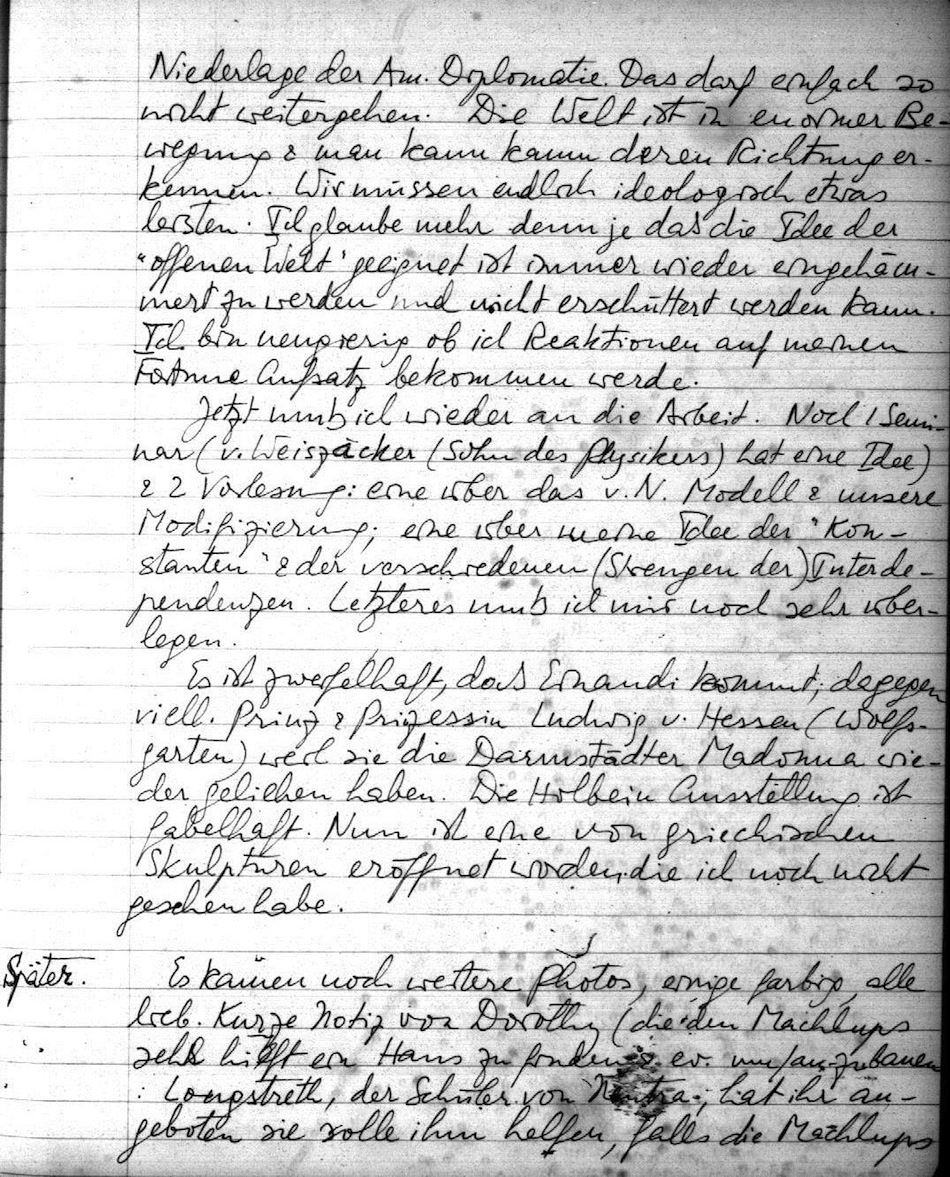 Niederlage der Am. Diplomatie. Das darf einfach so
nicht weitergehen. Die Welt ist in enormer Be-
wegung & man kann kaum deren Richtung er-
kennen. Wir müssen endlich ideologisch etwas
leisten. Ich glaube mehr denn je dass die Idee der
"offenen Welt" geeignet ist immer wieder eingehäm-
mert zu werden und nicht erschüttert werden kann.
Ich bin neugierig ob ich Reaktionen auf meinen
Fortune Aufsatz bekommen werde.
Jetzt muß ich wieder an die Arbeit. Noch 1 Semi-
nar (v. Weiszäcker (Sohn des Physikers) hat eine Idee)
& 2 Vorlesung: eine über das v. N. Modell & unsere
Modifizierung; eine über meine Idee der "Kon-
stanten" & der verschiedenen (Strengen der) Interde-
pendenzen. Letzteres muß ich mir noch sehr über-
legen.
Es ist zweifelhaft, dass Einaudi kommt; dagegen
viell. Prinz & Prinzessin Ludwig v. Hessen (Wolfs-
garten) weil sie die Darmstädter Madonna wie-
der geliehen haben. Die Holbein Ausstellung ist
fabelhaft. Nun ist eine von griechischen
Skulpturen eröffnet worden, die ich noch nicht
gesehen habe.
Später. Es kamen noch weitere Photos, einige farbig, alle
lieb. Kurze Notiz von Dorothy (die den Machlups
sehr hilft ein Haus zu finden & ev. um/anzubauen
: Longstreth, der Schüler von Neutra, hat ihr an-
geboten sie solle ihm helfen, falls die Machlups